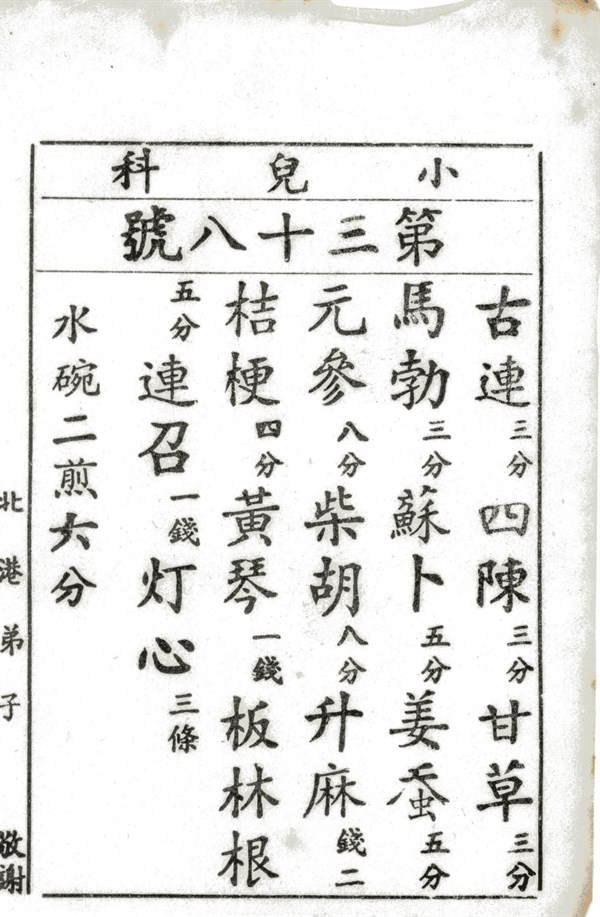 小兒科
第三十八號
古連三分四陳三分甘草三分
馬勃三分蘇卜五分姜蚕五分
元參八分柴胡八分升麻錢二
桔梗四分黃琴一錢板林根
五分連召一錢灯心三條
水碗二煎六分
北港弟子敬謝